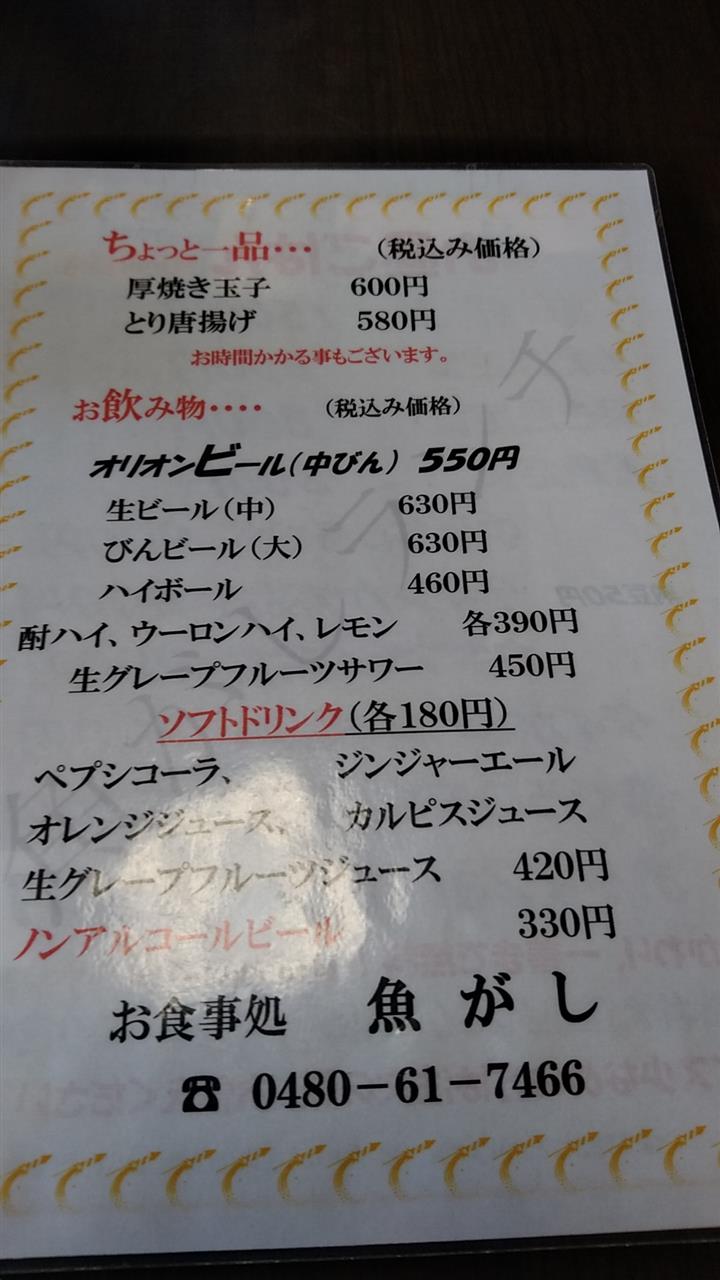 ちょっと一品･･･ （税込み価格）
厚焼き玉子 600円
とり唐揚げ 580円
お時間かかる事もございます。
お飲み物････ （税込み価格）
オリオンビール（中びん） 550円
生ビール（中） 630円
びんビール（大） 630円
ハイボール 460円
酎ハイ、ウーロンハイ、レモン 各390円
生グレープフルーツサワー 450円
ソフトドリンク（各180円）
ペプシコーラ、 ジンジャーエール
オレンジジュース、 カルピスジュース
生グレープフルーツジュース 420円
ノンアルコールビール 330円
お食事処 魚がし
☎ 0480－61－7466